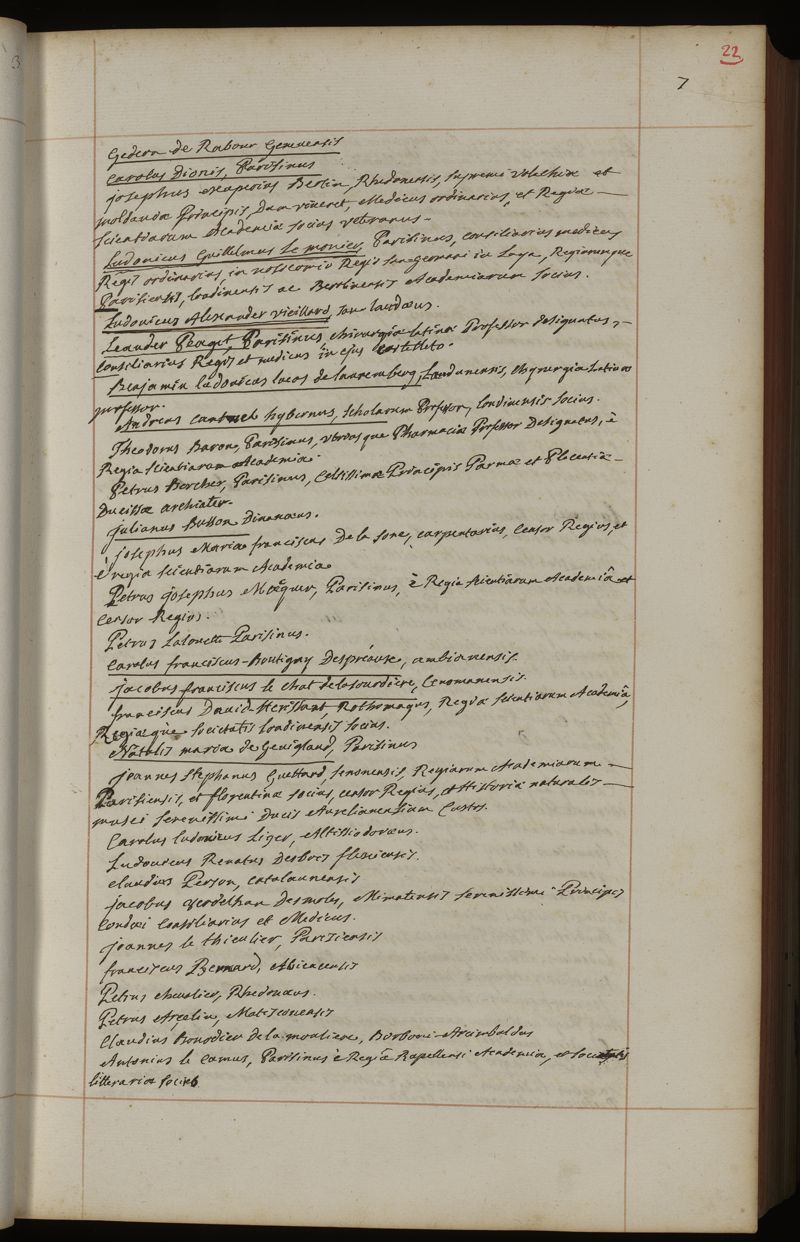 22
7
Gedeon de Rabour Genevensis
Carolus Dionis, Parisinus
josephus exuperius Bertin, Rhedonensis, supremi valachiæ et
moldaviæ Principis, Dum viveret Medicus ordinarius, et Regiæ
scientiarum Academiæ socius veteranus.
Ludovicus Guillelmus Le monier, Parisinus, consiliarius medicus
Regis ordinarius, in nosocomio Regio san-germani in Laya, Regiarumque
Parisiensis, londinensis ac Berlinensis Academiarum socius.
Ludovicus Alexander vieillard, san laudæus.
Leander Peaget, Parisinus, chirurgiæ latinæ Professor designatus,
Consiliarius Regis et medicus in ejus Castelleto.
Benjamin ludovicus lucas de lauremberg, Laudunensis, Chyrurgiæ Latinæ
professor.
Andreas Cantwel hybernus, scholarum Professor, londinensis socius.
Theodorus Baron, Parisinus, utriusque Pharmaciæ Professor Designatus, è
Regia scientiarum Academia.
Petrus Bercher, Parisinus, Celsissimæ Principis Parmæ et Placentiæ
Ducissæ archiater.
julianus Busson Dinanæus.
josephus Maria franciscus De la Sone, carpentarius, Censor Regius, et
è regia scientiarum Academia
Petrus josephus Macquer, Parisinus, è Regia scientiarum Academiâ et
Censor Regius.
Petrus Lalouette Parisinus.
Carolus franciscus-Boutigny Despréaux, ambianensis.
jacobus franciscus le chat delasourdiere, Cenomanensis.
franciscus David Herissant, Rothomagus, Regiæ scientiarum Academiâ,
Regiæque societatis londinensis socius.
Natalis maria de Gevigland, Parisinus
joannes stephanus Guettard, senonensis, Regiarum Academiarum
Parisiensis, et florentinæ socius, censor Regius, et Historiæ naturalis
musei serenissimi Ducis Aurelianensium Custos.
Carolus ludovicus Liger, Altissiodoræus.
Ludovicus Renatus Desbois flexiensis.
claudius Person, catalaunensis
jacobus verdelhan Desmoles, Mimatensis serenissimi Principis
Condæi Consiliarius et Medicus.
joannes le thieulier, Parisiensis
franciscus Bernard, Abiacensis
Petrus chevalier, Rhedonæus.
Petrus Arcelin, Matisconensis
Claudius Bonodieu de la mouliere, Borboni-Arcimbaldus
Antonius le Camus, Parisinus è Regiâ Rupellensi Academia, et societatis
litterariæ socius